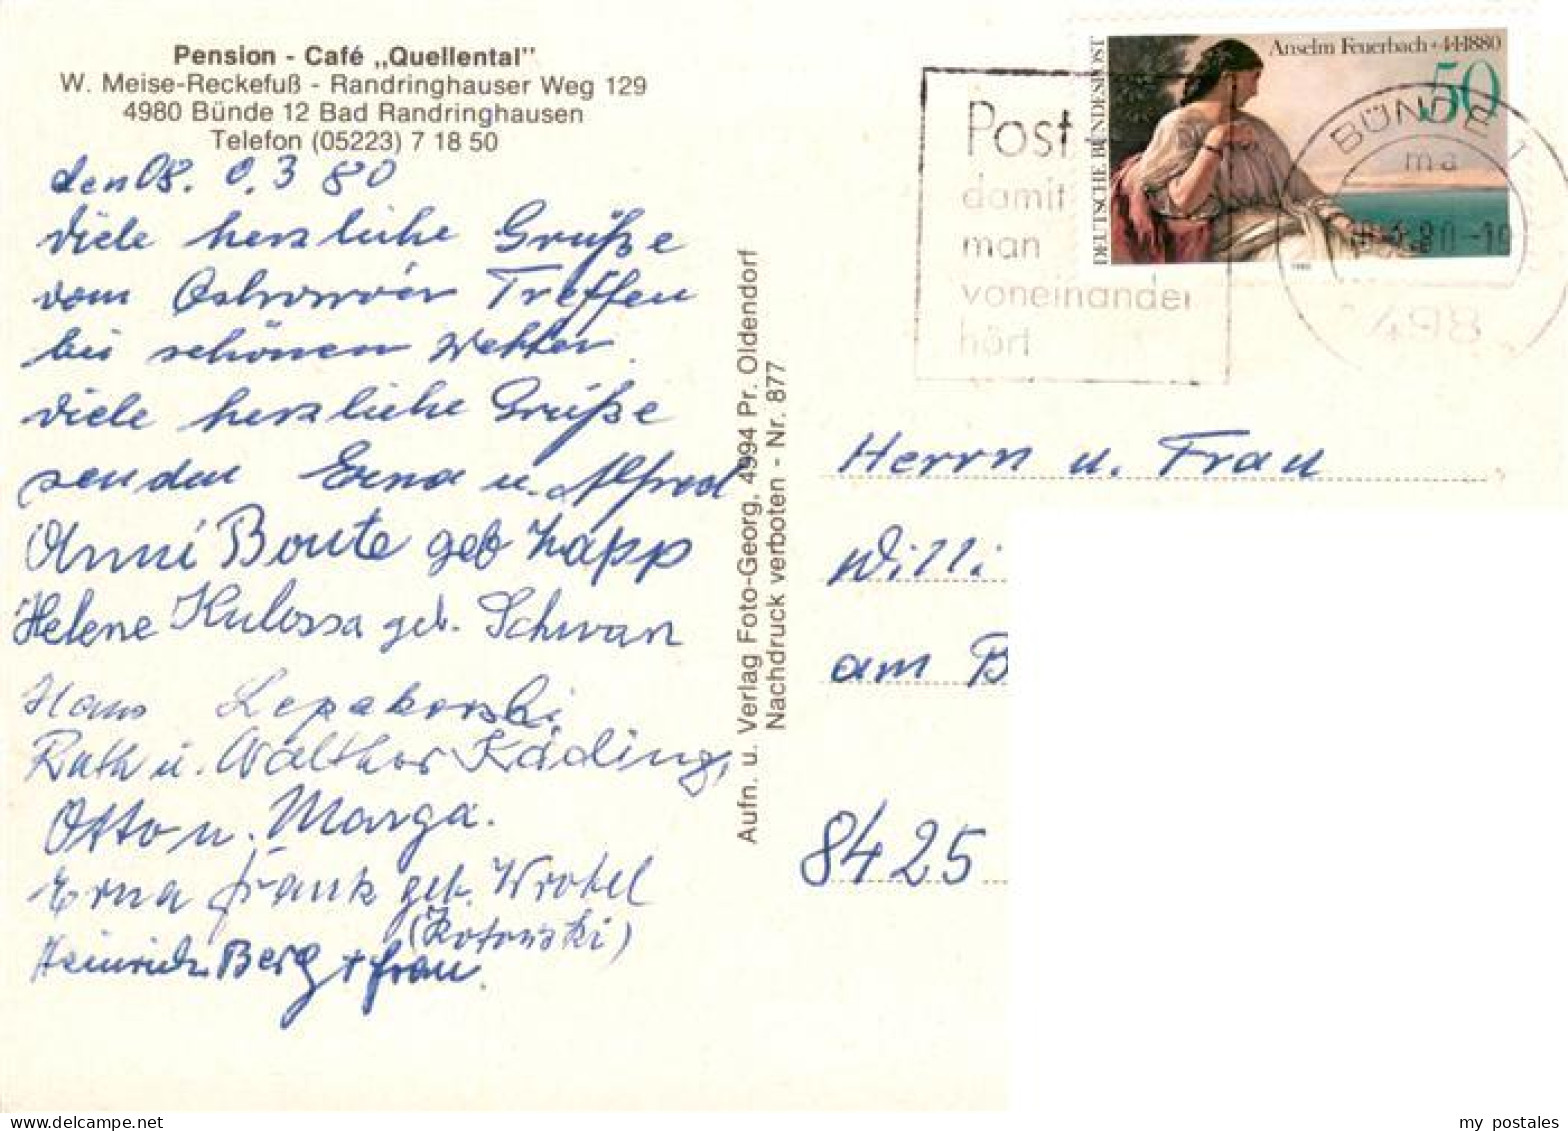 Pension - Café „Quellental"
W. Meise-Reckefuß - Randringhauser Weg 129
4980 Bünde 12 Bad Randringhausen
Telefon (05223) 7 18 50
den 08. 0.3 80
Viele herzliche Grüße
vom Treffen
bei schönen Wetter.
viele herzliche Grüße
senden Erna u. Alfred
Anni Boute geb Zapp
Helene Kulossa geb. Schwan
Hans
Ruth u. Walther Käding,
Otto u. Marga.
Erna Frank geb. Wrobel
(Kotowski)
Heinrich Berg + Frau.
Aufn. u. Verlag Foto-Georg, 4994 Pr. Oldendorf
Nachdruck verboten - Nr. 877
Post
damit
man
voneinander
hört
DEUTSCHE BUNDESPOST
Anselm Feuerbach + 4·1·1880
50
1980
BÜNDE 1
ma
.80-19
498
Herrn u. Frau
Willi
am B
8425
my postales